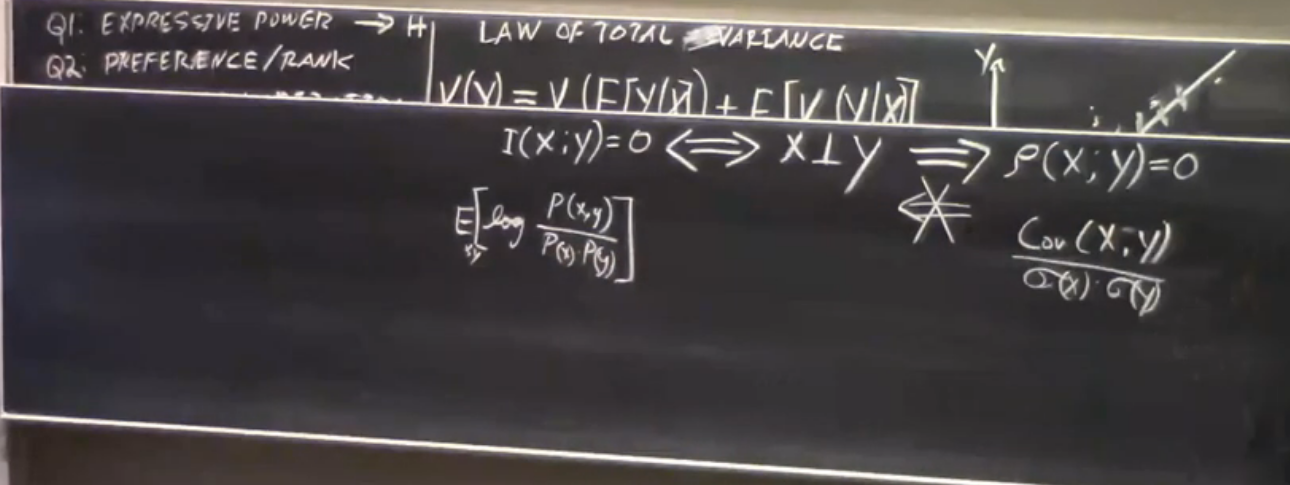 Q1: EXPRESSIVE POWER → H
Q2: PREFERENCE/RANK
LAW OF TOTAL VARIANCE
V(Y) = V(E[Y|X]) + E[V(Y|X)]
Y
I(X;Y)=0 ⟺ X⊥Y ⟹ ρ(X;Y)=0
E[log P(x,y) / P(x)·P(y)]
x,y
Cov(X;Y)
σ(X)·σ(Y)